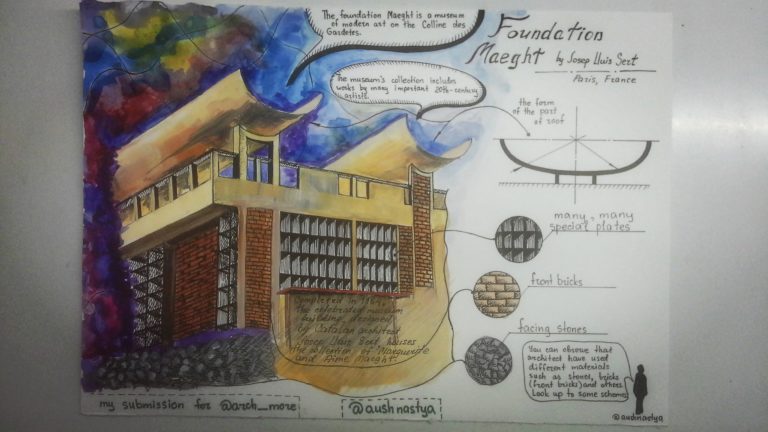 The foundation Maeght is a museum
of modern art on the Colline des
Gardetes.
The museum's collection includes
works by many important 20th-century
artists.
Foundation
Maeght by Josep Lluis Sert
Paris, France
the form
of the part
of roof
many, many
special plates
front bricks
facing stones
Completed in
the celebrated museum
building, designed
by Catalan architect
Josep Lluis Sert, houses
the collection of Marguerite
and Aime Maeght.
You can observe that
architect have used
different materials
such as stones, bricks
(front bricks) and others
Look up to some schema
@aushnastya
my submission for @arch_more
@aushnastya